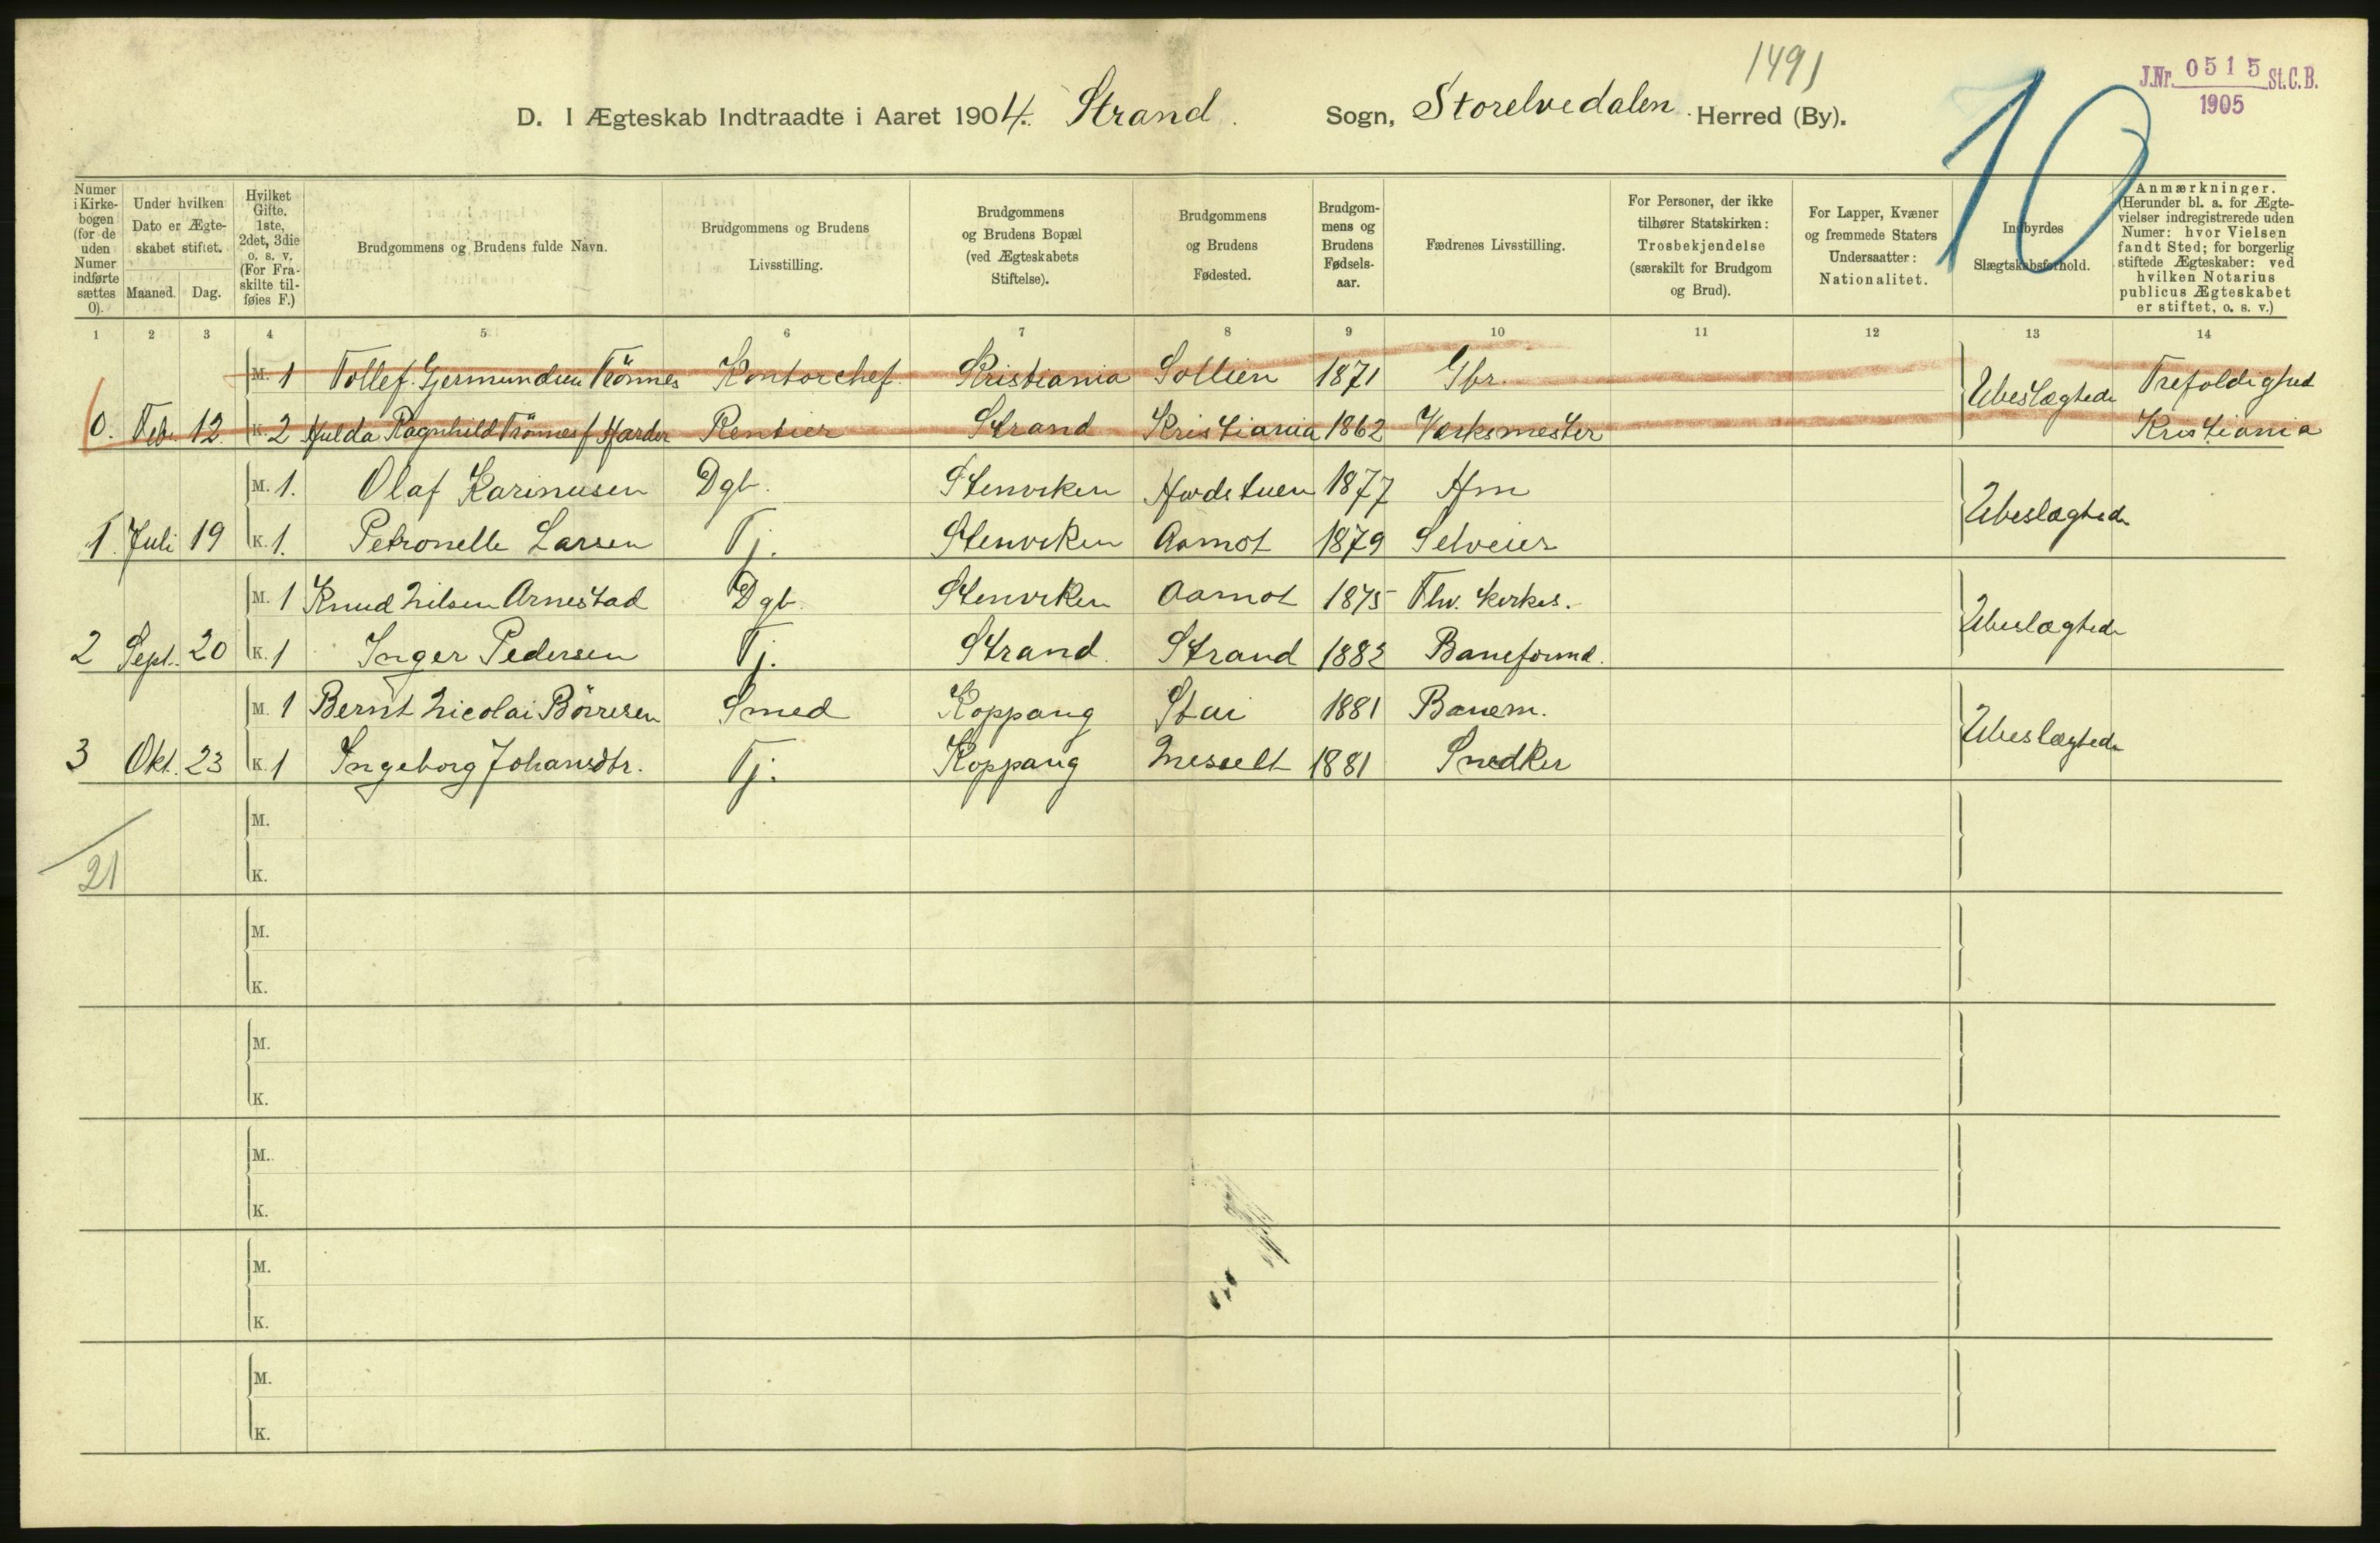 1491
J.Nr. 0515 St.C.B.
1905
10
D. I Ægteskab Indtraadte i Aaret 1904. Strand. Sogn, Storelvedalen. Herred (By).
Numer i Kirkebogen (for de uden Numer indførte sættes 0).
Under hvilken Dato er Ægteskabet stiftet.
Maaned. Dag.
Hvilket Gifte. 1ste, 2det, 3die o. s. v. (For Fraskilte tilføies F.)
Brudgommens og Brudens fulde Navn.
Brudgommens og Brudens Livsstilling.
Brudgommens og Brudens Bopæl (ved Ægteskabets Stiftelse).
Brudgommens og Brudens Fødested.
Brudgommens og Brudens Fødselsaar.
Fædrenes Livsstilling.
For Personer, der ikke tilhører Statskirken: Trosbekjendelse (særskilt for Brudgom og Brud).
For Lapper, Kvæner og fremmede Staters Undersaatter: Nationalitet.
Indbyrdes Slægtskabsforhold.
Anmærkninger. (Herunder bl. a. for Ægtevielser indregistrerede uden Numer: hvor Vielsen fandt Sted; for borgerlig stiftede Ægteskaber: ved hvilken Notarius publicus Ægteskabet er stiftet, o. s. v.)
1 2 3 4 5 6 7 8 9 10 11 12 13 14
M. 1 Tollef Gjermundsen Trönnes Kontorchef. Kristiania Sollien 1871 Gbr. Ubeslægtede Trefoldighed
0. Feb. 12. K. 2 Hulda Ragnhild Trönnes f. Harder Rentier Strand Kristiania 1862 Værksmester Kristiania
M. 1. Olaf Karinusen Dgb. Stenviken 1877 Hm Ubeslægtede
1. Juli 19 K. 1. Petronelle Larsen Tj. Stenviken Aamot 1879 Selveier
M. 1 Knud Nilsen Arnestad Dgb. Stenviken Aamot 1875 Ubeslægtede
2 Sept. 20 K. 1 Inger Pedersen Tj. Strand. Strand 1882 Baneformd.
M. 1 Bernt Nicolai Börresen Smed Koppang Stai 1881 Banem. Ubeslægtede
3 Okt. 23 K. 1 Ingeborg Johansdtr. Tj. Koppang Messelt 1881 Snedker
M.
21 K.
M.
K.
M.
K.
M.
K.
M.
K.
M.
K.